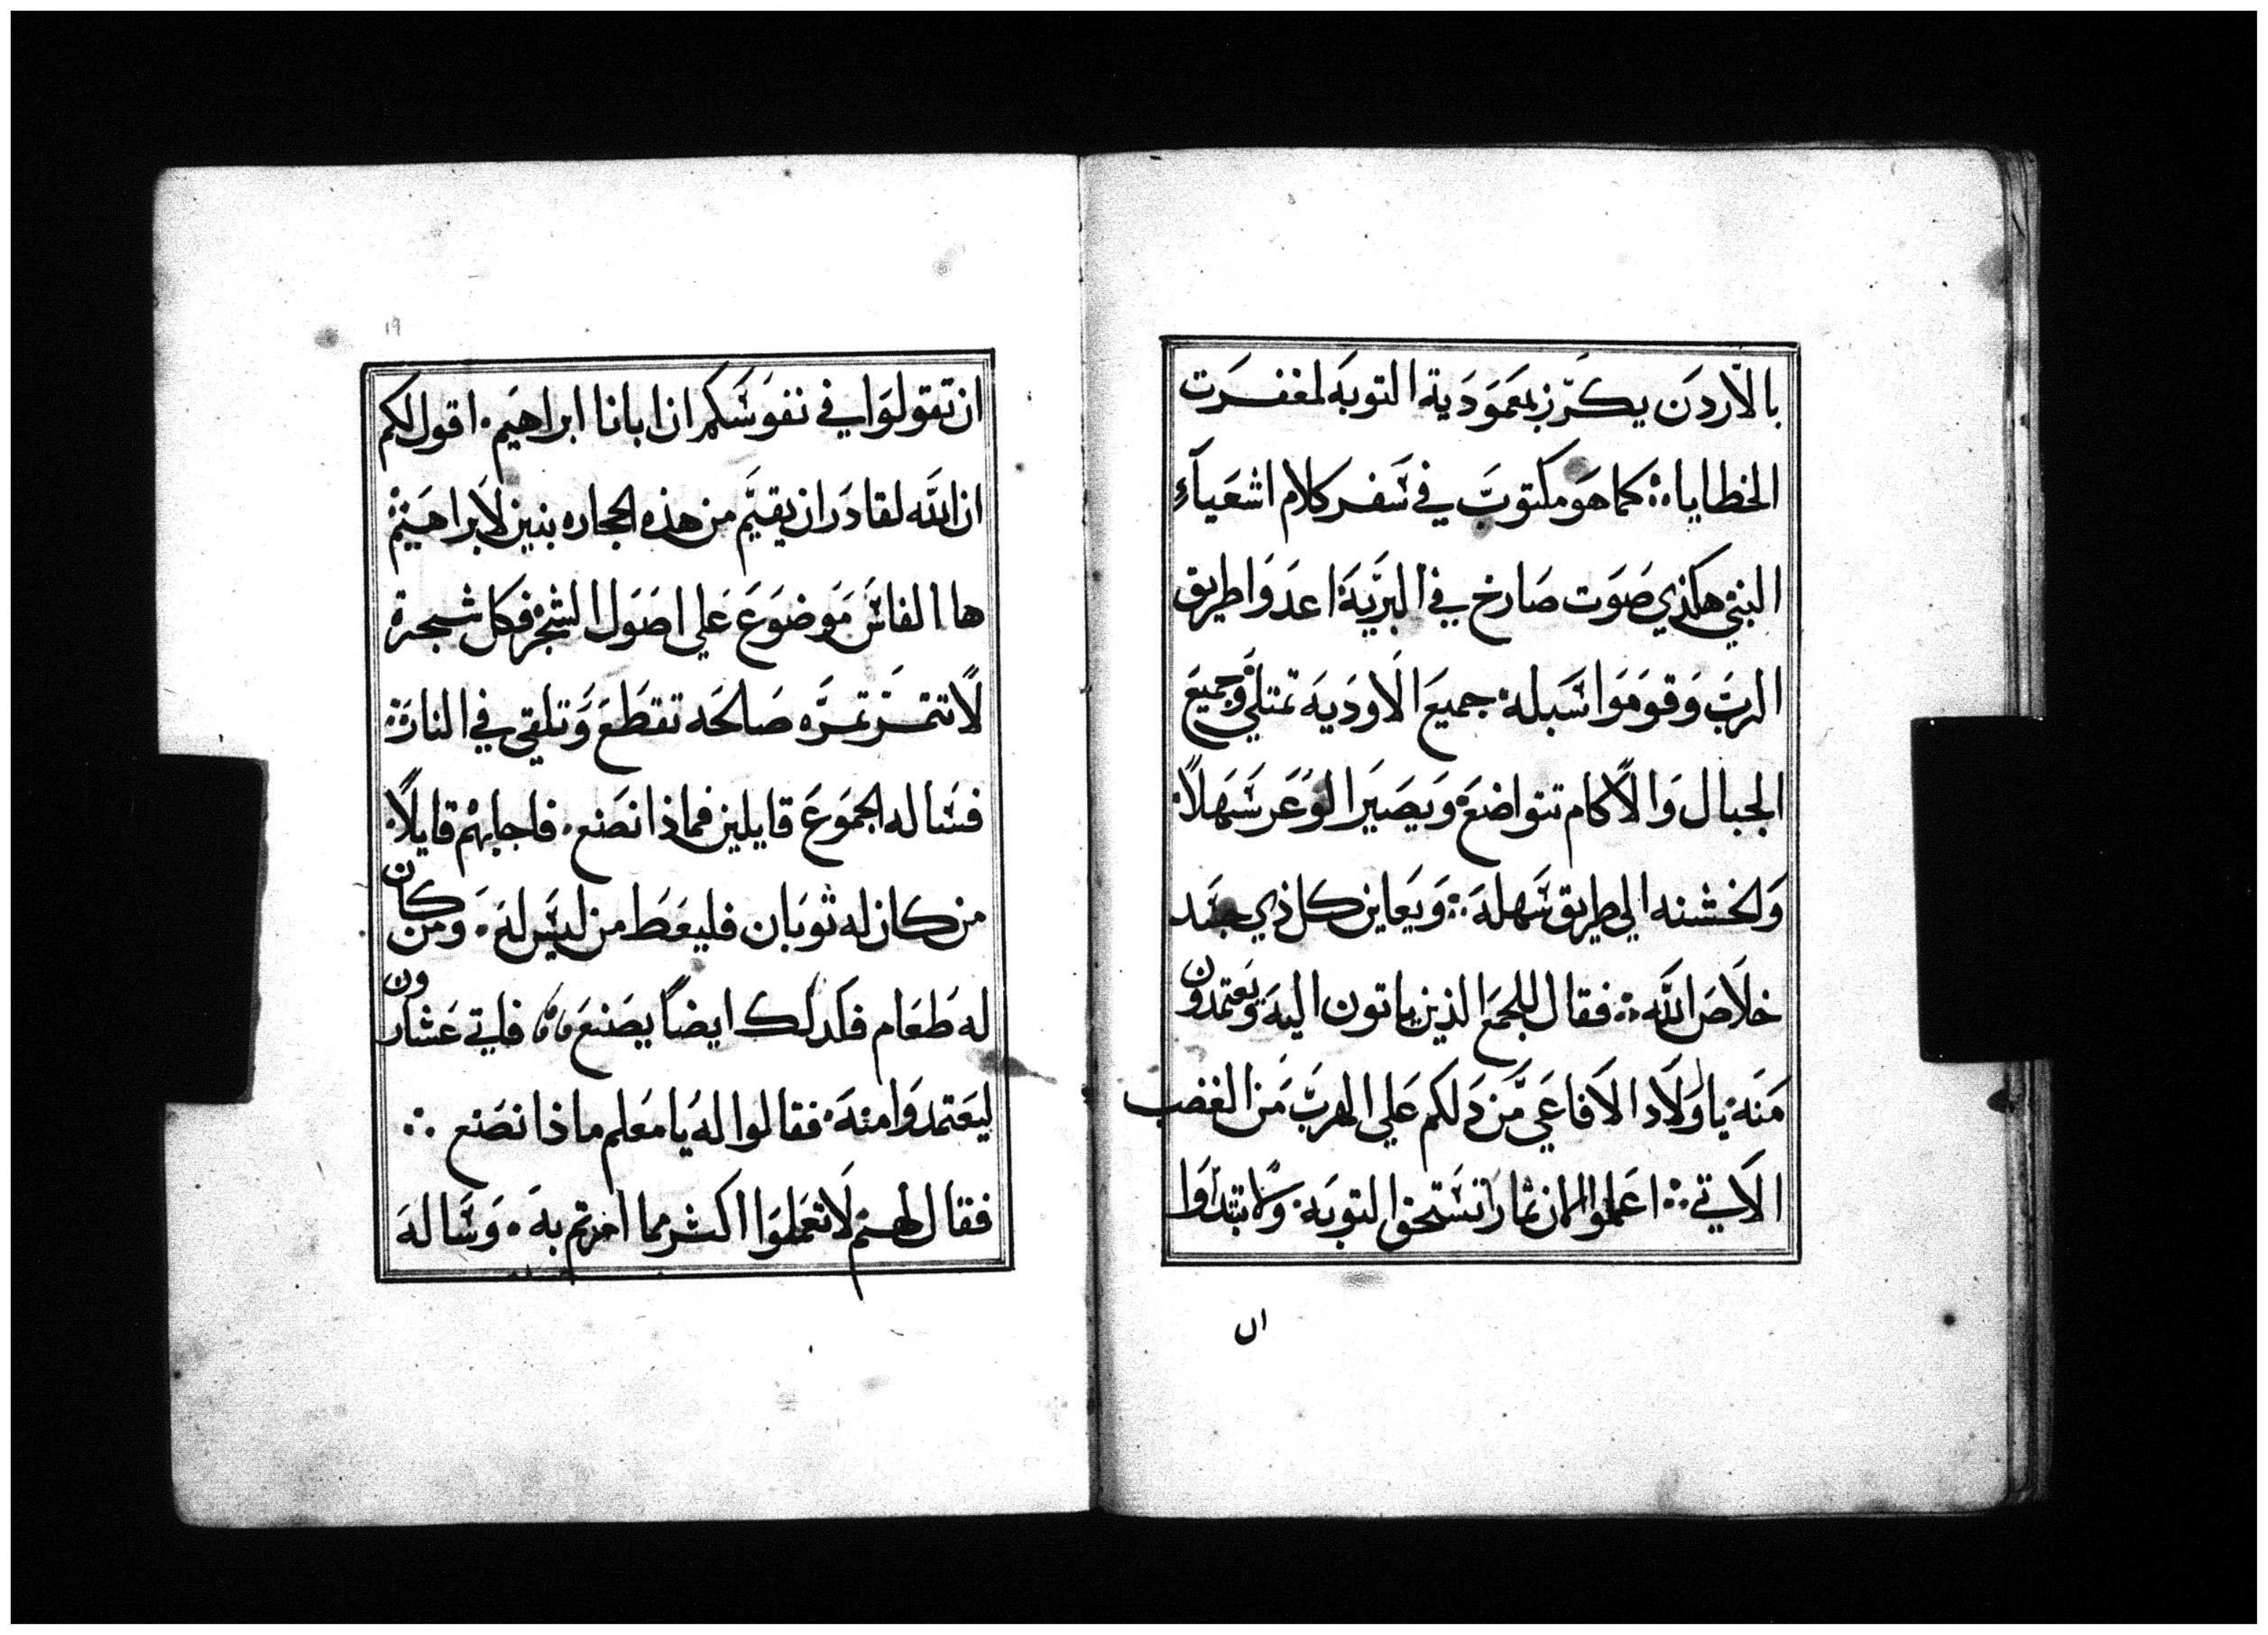 بالاردن يكرز بمعمودية التوبه لمغفرت
الخطايا ܀ كما هو مكتوب في سفر كلام اشعياء
النبي هكذي صوت صارخ في البرية اعدوا طريق
الرب وقوموا سبله جميع الاودية تمتلي وجميع
الجبال والاكام تتواضع ويصير الوعر سهلاً
والخشنه الي طريق سهله ܀ ويعاين كل ذي جسد
خلاص الله ܀ فقال للجمع الذين ياتون اليه ويعتمدون
منه يا ولاد الافاعي من دلكم علي الهرب من الغضب
الاتي ܀ اعملوا الان ثمارا تستحق التوبه ولا تبتداوا
ان
١٩
ان تقولوا في نفوسكم ان ابانا ابراهيم اقول لكم
ان الله لقادر ان يقيم من هذه الحجاره بنين لابراهيم
ها الفاس موضوع علي اصول الشجر فكل شجرة
لا تتمر تمره صالحه تقطع وتلقي في النار
فساله الجموع قايلين فماذا نصنع فاجابهم قايلاً
من كان له ثوبان فليعط من ليس له ومن كان
له طعام فكدلك ايضاً يصنع فاتي عشارون
ليعتمدوا منه فقالوا له يا معلم ماذا نصنع ܀
فقال لهم لا تعملوا اكثر مما امرتم به وساله